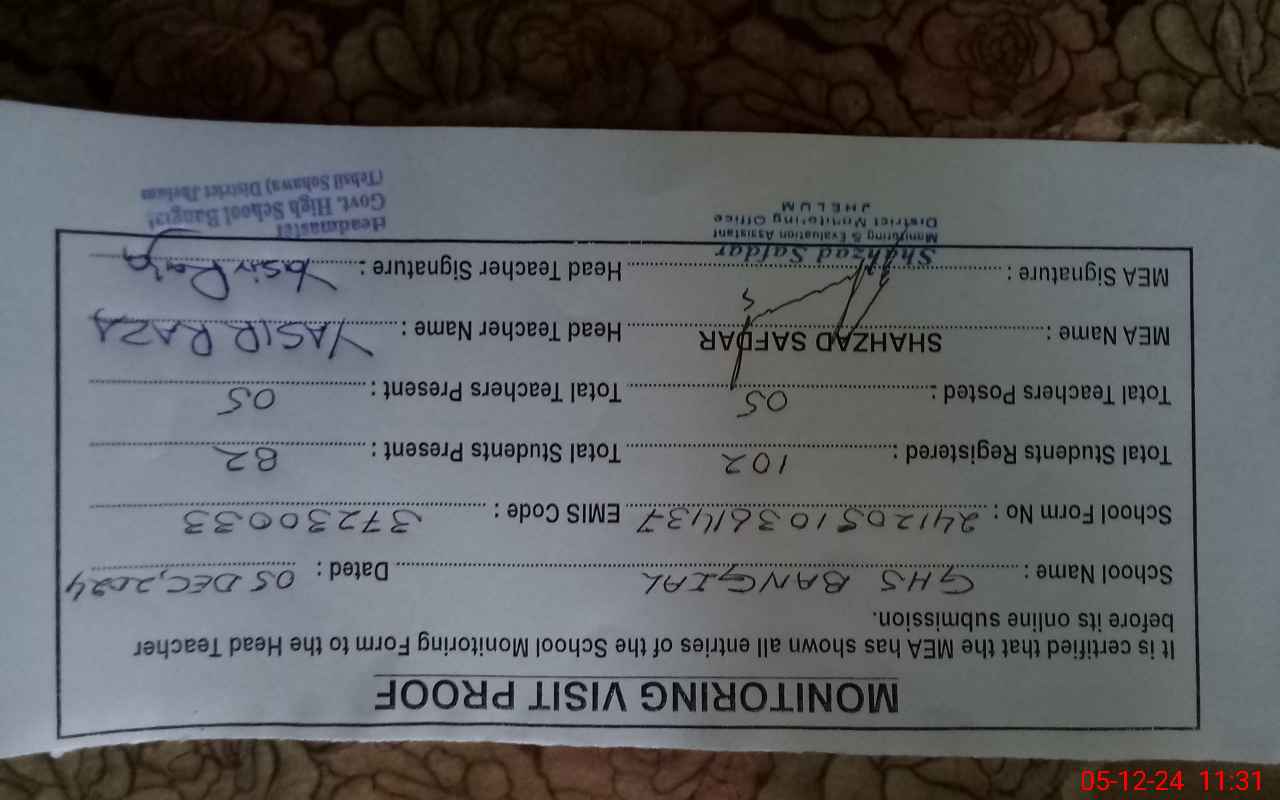 MONITORING VISIT PROOF
It is certified that the MEA has shown all entries of the School Monitoring Form to the Head Teacher
before its online submission.
School Name : GHS BANGIAL Dated : 05 DEC, 2024
School Form No : 24120510361437 EMIS Code : 37230033
Total Students Registered : 102 Total Students Present : 82
Total Teachers Posted : 05 Total Teachers Present : 05
MEA Name : SHAHZAD SAFDAR Head Teacher Name : YASIR RAZA
MEA Signature : Head Teacher Signature : Yasir Raza
Shahzad Safdar
Monitoring & Evaluation Assistant
District Monitoring Office
JHELUM
Headmaster
Govt. High School Bangial
(Tehsil Sohawa) District Jhelum
05-12-24 11:31